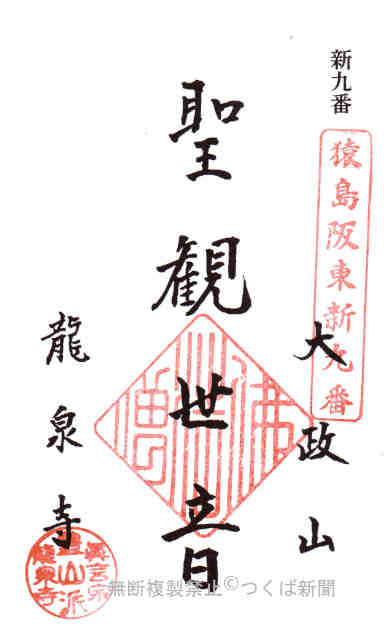 新九番
猿島阪東新九番
大政山
聖観世音
龍泉寺
真言宗
豊山派
龍泉寺
無断複製禁止©つくば新聞